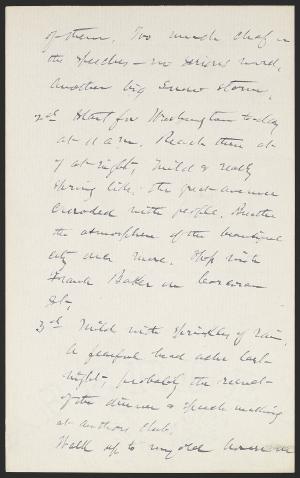 of them. Too much chaff in
the speeches - no serious word.
Another big snow storm.
2d Start for Washington to-day
at 11 a.m. Reach there at
7 at night, mild & really
spring like. The great avenue
crowded with people. Breathe
the atmosphere of the beautiful
city once more. Stop with
Frank Baker on Corcoran
St,
3d Mild with sprinkles of rain.
A fearful head ache last
night, probably the result
of the dinner & speech making
at Authors Club.
Walk up to my old house on